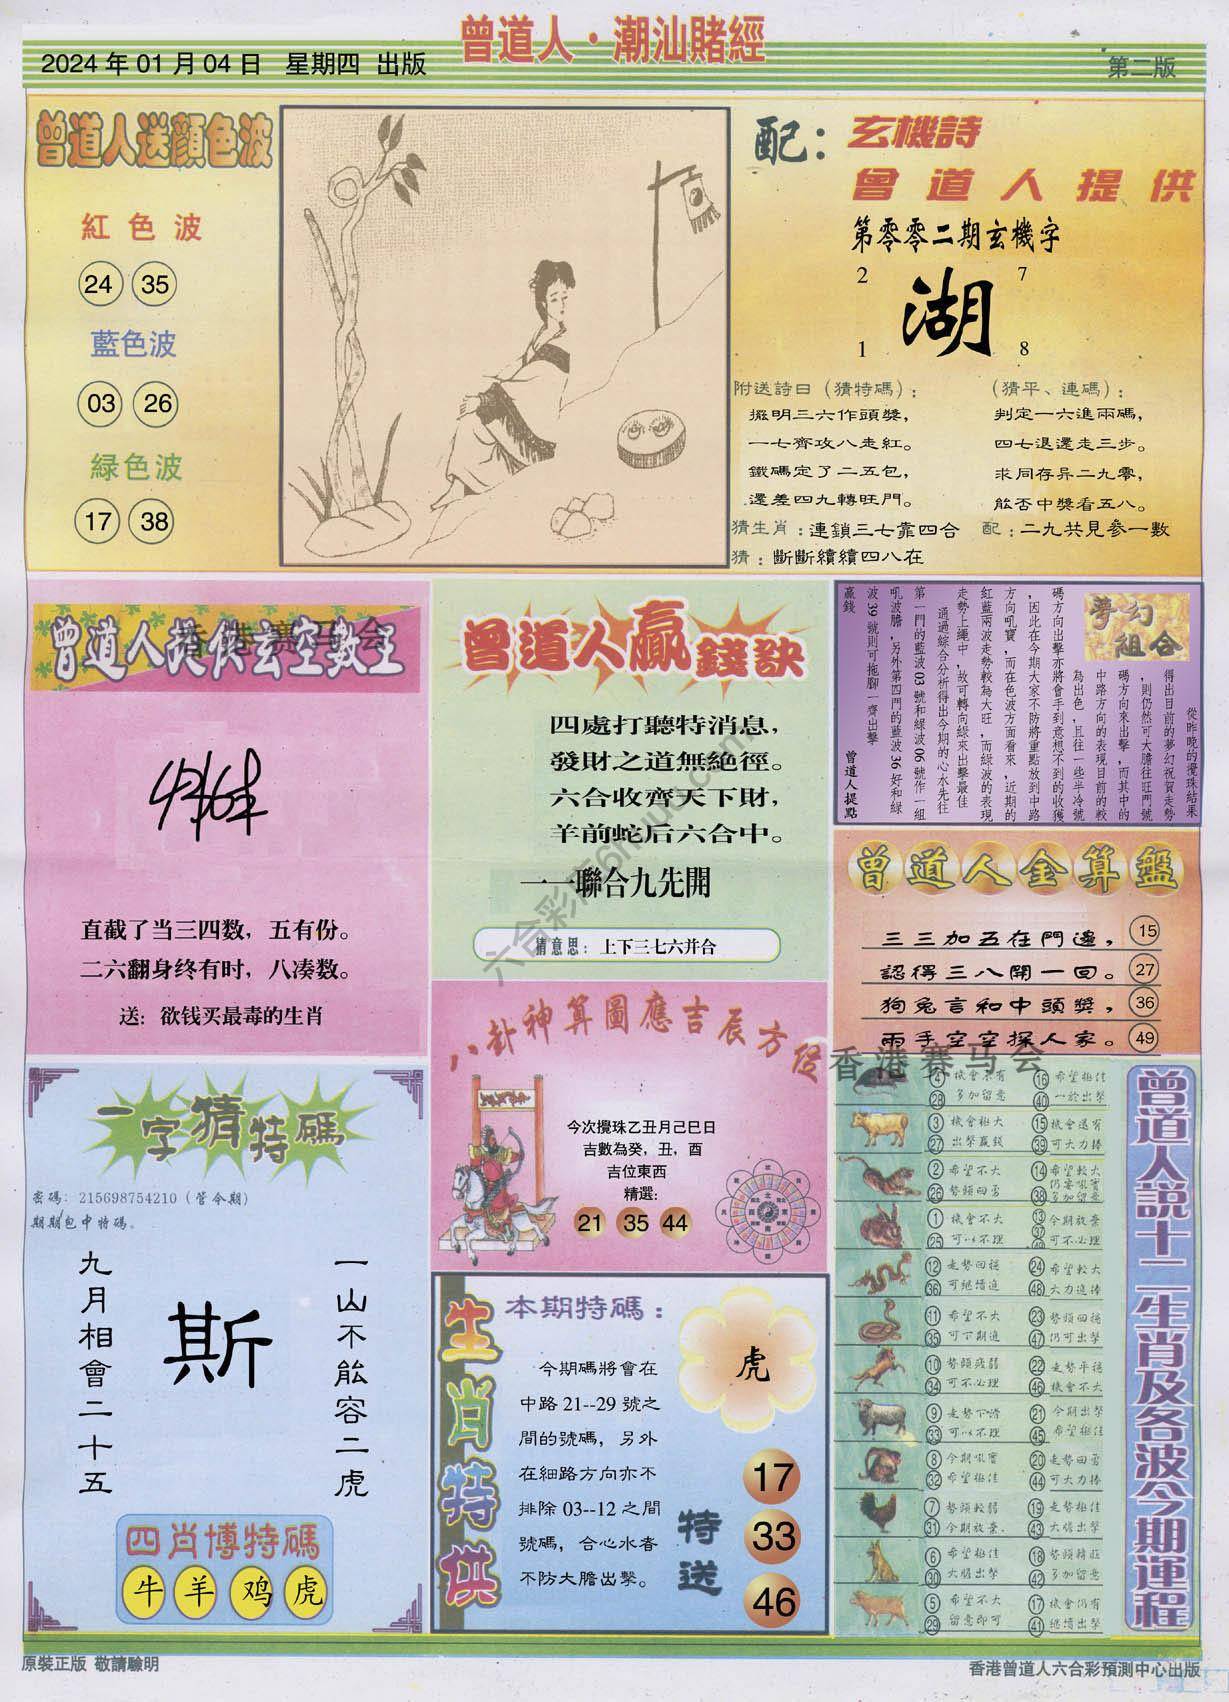 曾道人·潮汕賭經
2024年01月04日 星期四 出版
第二版
曾道人送顔色波
紅色波
24 35
藍色波
03 26
緑色波
17 38
配：玄機詩
曾道人提供
第零零二期玄機字
2 7
湖
1 8
附送詩曰（猜特碼）：
攤明三六作頭獎，
一七齊攻八走紅。
鐵碼定了二五包，
還差四九轉旺門。
（猜平、連碼）：
判定一六進兩碼，
四七退還走三步。
求同存异二九零，
能否中獎看五八。
猜生肖：連鎖三七靠四合
配：二九共見參一數
猜：斷斷續續四八在
曾道人提供玄空數王
香港赛马会
直截了当三四数，五有份。
二六翻身终有时，八凑数。
送：欲钱买最毒的生肖
曾道人贏錢訣
四處打聽特消息，
發財之道無絶徑。
六合收齊天下財，
羊前蛇后六合中。
一一聯合九先開
猜意思：上下三七六并合
夢幻組合
從昨晚的攪珠結果
得出目前的夢幻祝賀走勢
，則仍然可大膽往旺門號
碼方向來出擊，而其中的
中路方向的表現目前的較
為出色，且往一些半冷號
碼方向出擊亦將會手到意想不到的收獲
，因此在今期大家不防將重點放到中路
方向吼寶，而在色波方面看來，近期的
紅藍兩波走勢較為大旺，而緑波的表現
走勢上繩中，故可轉向緑來出擊最佳
通過綜合分析得出今期的心水先往
第一門的藍波03號和緑波06號作一組
吼波膽，另外第四門的藍波36好和緑
波39號則可拖腳一齊出擊
贏錢
曾道人提點
曾道人金算盤
三三加五在門邊， 15
認得三八開一回。 27
狗兔言和中頭獎， 36
兩手空空探人家。 49
香港赛马会
八卦神算圖應吉辰方位
今次攪珠乙丑月己巳日
吉數為癸，丑，酉
吉位東西
精選：
21 35 44
一字猜特碼
密碼：215698754210（管今期）
期期包中特碼。
一山不能容二虎
斯
九月相會二十五
四肖博特碼
牛 羊 鸡 虎
生肖特供
本期特碼：
虎
今期碼將會在
中路21--29號之
間的號碼，另外
在細路方向亦不
排除03--12之間
號碼，合心水者
不防大膽出擊。
特送
17
33
46
曾道人説十二生肖及各波今期運程
4 機會不有 16 希望極佳
28 多加留意 40 一於出擊
3 機會極大 15 機會還有
27 出擊贏錢 39 可大力捧
2 希望不大 14 希望較大
26 勢頭回勇 38 多加留意
1 機會不大 13 今期放棄
25 可以不理 37 可不必理
12 走勢回穩 24 希望較大
36 可繼續追 48 大力追捧
11 希望不大 23 勢頭回穩
35 可下期追 47 仍可出擊
10 勢頭疲弱 22 走勢平穩
34 可不必理 46 機會不大
9 走勢下滑 21 今期出擊
33 可以不理 45 希望極佳
8 今期吼寶 20 走勢回勇
32 希望極佳 44 可大力捧
7 勢頭較弱 19 走勢極佳
31 今期放棄. 43 大膽出擊
6 希望極佳 18 勢頭轉旺
30 大膽出擊 42 多加留意
5 希望不大 17 機會仍有
29 留意即可 41 繼續出擊
六合彩库6huu.com
原裝正版 敬請驗明
香港曾道人六合彩預測中心出版